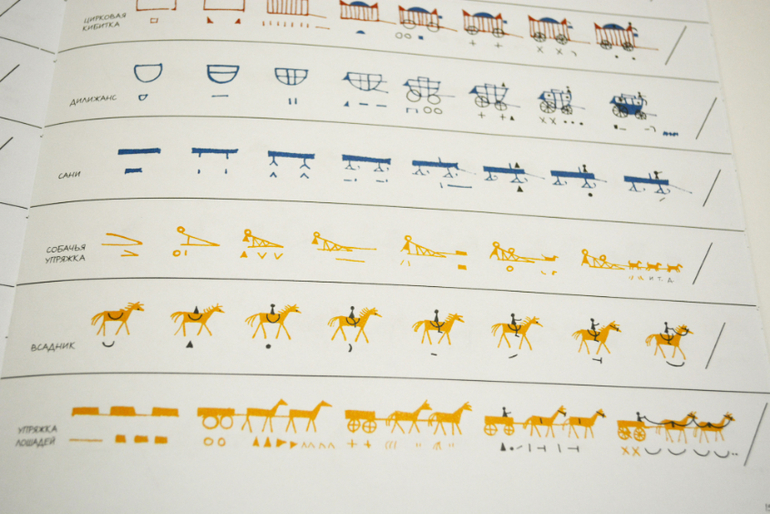 ЦИРКОВАЯ
КИБИТКА
ДИЛИЖАНС
САНИ
СОБАЧЬЯ
УПРЯЖКА
ВСАДНИК
УПРЯЖКА
ЛОШАДЕЙ